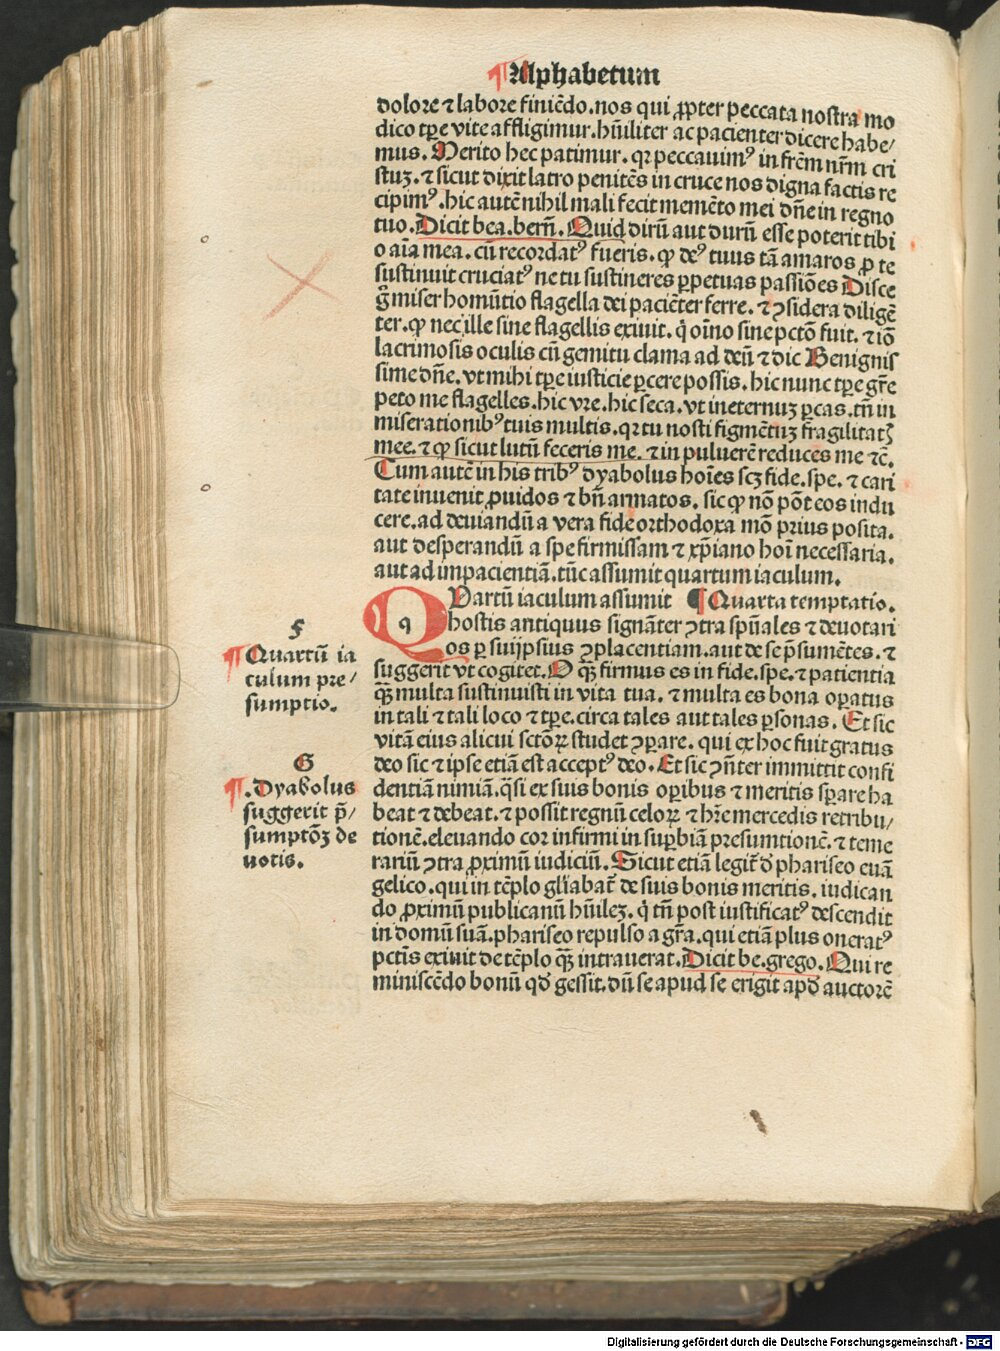 ¶Alphabetum
dolore ⁊ labore finiēdo. nos qui ꝓpter peccata nostra mo
dico tꝑe vite affligimur. hūiliter ac pacienter dicere habe/
mus. Merito hec patimur. qꝛ peccauimꝰ in frēm nr̄m cri
stuꝫ. ⁊ sicut dixit latro penitēs in cruce nos digna factis re
cipimꝰ. hic autē nihil mali fecit memēto mei dn̄e in regno
tuo. Dicit bea. bern̄. Quid dirū aut durū esse poterit tibi
o aīa mea. cū recordatꝰ fueris. ꝙ deꝰ tuus tā amaros ꝓ te
sustinuit cruciatꝰ ne tu sustineres ꝑpetuas passiōes Disce
g̃ miser homūtio flagella dei paciēter ferre. ⁊ ꝯsidera diligē
ter. ꝙ nec ille sine flagellis exiuit. q̇ oīno sine pctō fuit. ⁊ iō
lacrimosis oculis cū gemitu clama ad deū ⁊ dic Benignis
sime dn̄e. vt mihi tꝑe iusticie ꝑcere possis. hic nunc tꝑe gr̄e
peto me flagelles. hic vre. hic seca. vt in eternuꝫ ꝑcas. tn̄ in
miserationibꝰ tuis multis. qꝛ tu nosti figmētuꝫ fragilitatꝭ
mee. ⁊ ꝙ sicut lutū feceris me. ⁊ in puluerē reduces me ⁊c̄.
Cum autē in his tribꝰ dyabolus hoīes scꝫ fide. spe. ⁊ cari
tate inuenit ꝓuidos ⁊ bn̄ armatos. sic ꝙ nō pōt eos indu
cere. ad deuiandū a vera fide orthodoxa mō prius posita.
aut desperandū a spe firmissam ⁊ xp̄iano hoī necessaria.
aut ad impacientiā. tūc assumit quartum iaculum.
QUartū iaculum assumit ¶Quarta temptatio.
hostis antiquus signāter ꝯtra spūales ⁊ deuotari
os ꝑ suijpsius ꝯplacentiam. aut de se p̄sumētes. ⁊
suggerit vt cogitet. O qꝫ firmus es in fide. spe. ⁊ patientia
qꝫ multa sustinuisti in vita tua. ⁊ multa es bona oꝑatus
in tali ⁊ tali loco ⁊ tꝑe. circa tales aut tales ꝑsonas. Et sic
vitā eius alicui sctōꝝ studet ꝯꝑare. qui ex hoc fuit gratus
deo sic ⁊ ipse etiā est acceptꝰ deo. Et sic ꝯn̄ter immittit confi
dentiā nimiā. q̄si ex suis bonis oꝑibus ⁊ meritis sꝑare ha
beat ⁊ debeat. ⁊ possit regnū celoꝝ ⁊ hr̄e mercedis retribu/
tionē. eleuando cor infirmi in suꝑbiā presumtionē. ⁊ teme
rariū ꝯtra ꝓximū iudiciū. Sicut etiā legit̄ d̄ phariseo euā
gelico. qui in tēplo glīabat̄ de suis bonis meritis. iudican
do ꝓximū publicanū hūileꝫ. q̇ tn̄ post iustificatꝰ descendit
in domū suā. phariseo repulso a gr̄a. qui etiā plus oneratꝰ
pctīs exiuit de tēplo qꝫ intrauerat. Dicit be. grego. Qui re
miniscēdo bonū qd̄ gessit. dū se apud se erigit apd̄ auctorē
F
¶Quartū ia
culum pre/
sumptio.
G
¶.Dyabolus
suggerit p̄/
sumptōꝫ de
uotis.
Digitalisierung gefördert durch die Deutsche Forschungsgemeinschaft - DFG